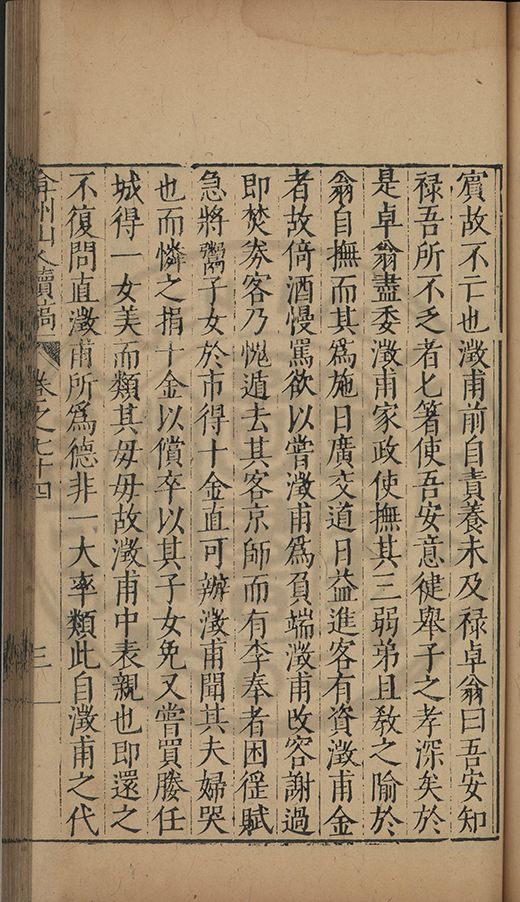 賔故不二也澂甫前自責養未及禄卓翁曰吾安知
禄吾所不乏者匕箸使吾安意徤舉子之孝深矣於
是卓翁盡委澂甫家政使撫其三弱弟且敎之隃於
翁自撫而其爲施日廣交道日益進客有資澂甫金
者故倚酒慢罵欲以嘗澂甫爲負端澂甫改容謝過
即焚券客乃愧遁去其客京師而有李奉者困徭賦
急將鬻子女於市得十金直可辦澂甫聞其夫婦哭
也而憐之捐十金以償卒以其子女免又嘗買媵任
城得一女美而類其毋毋故澂甫中表親也即還之
不復問直澂甫所爲德非一大率類此自澂甫之代
弇州山人續稿 卷之七十四 三